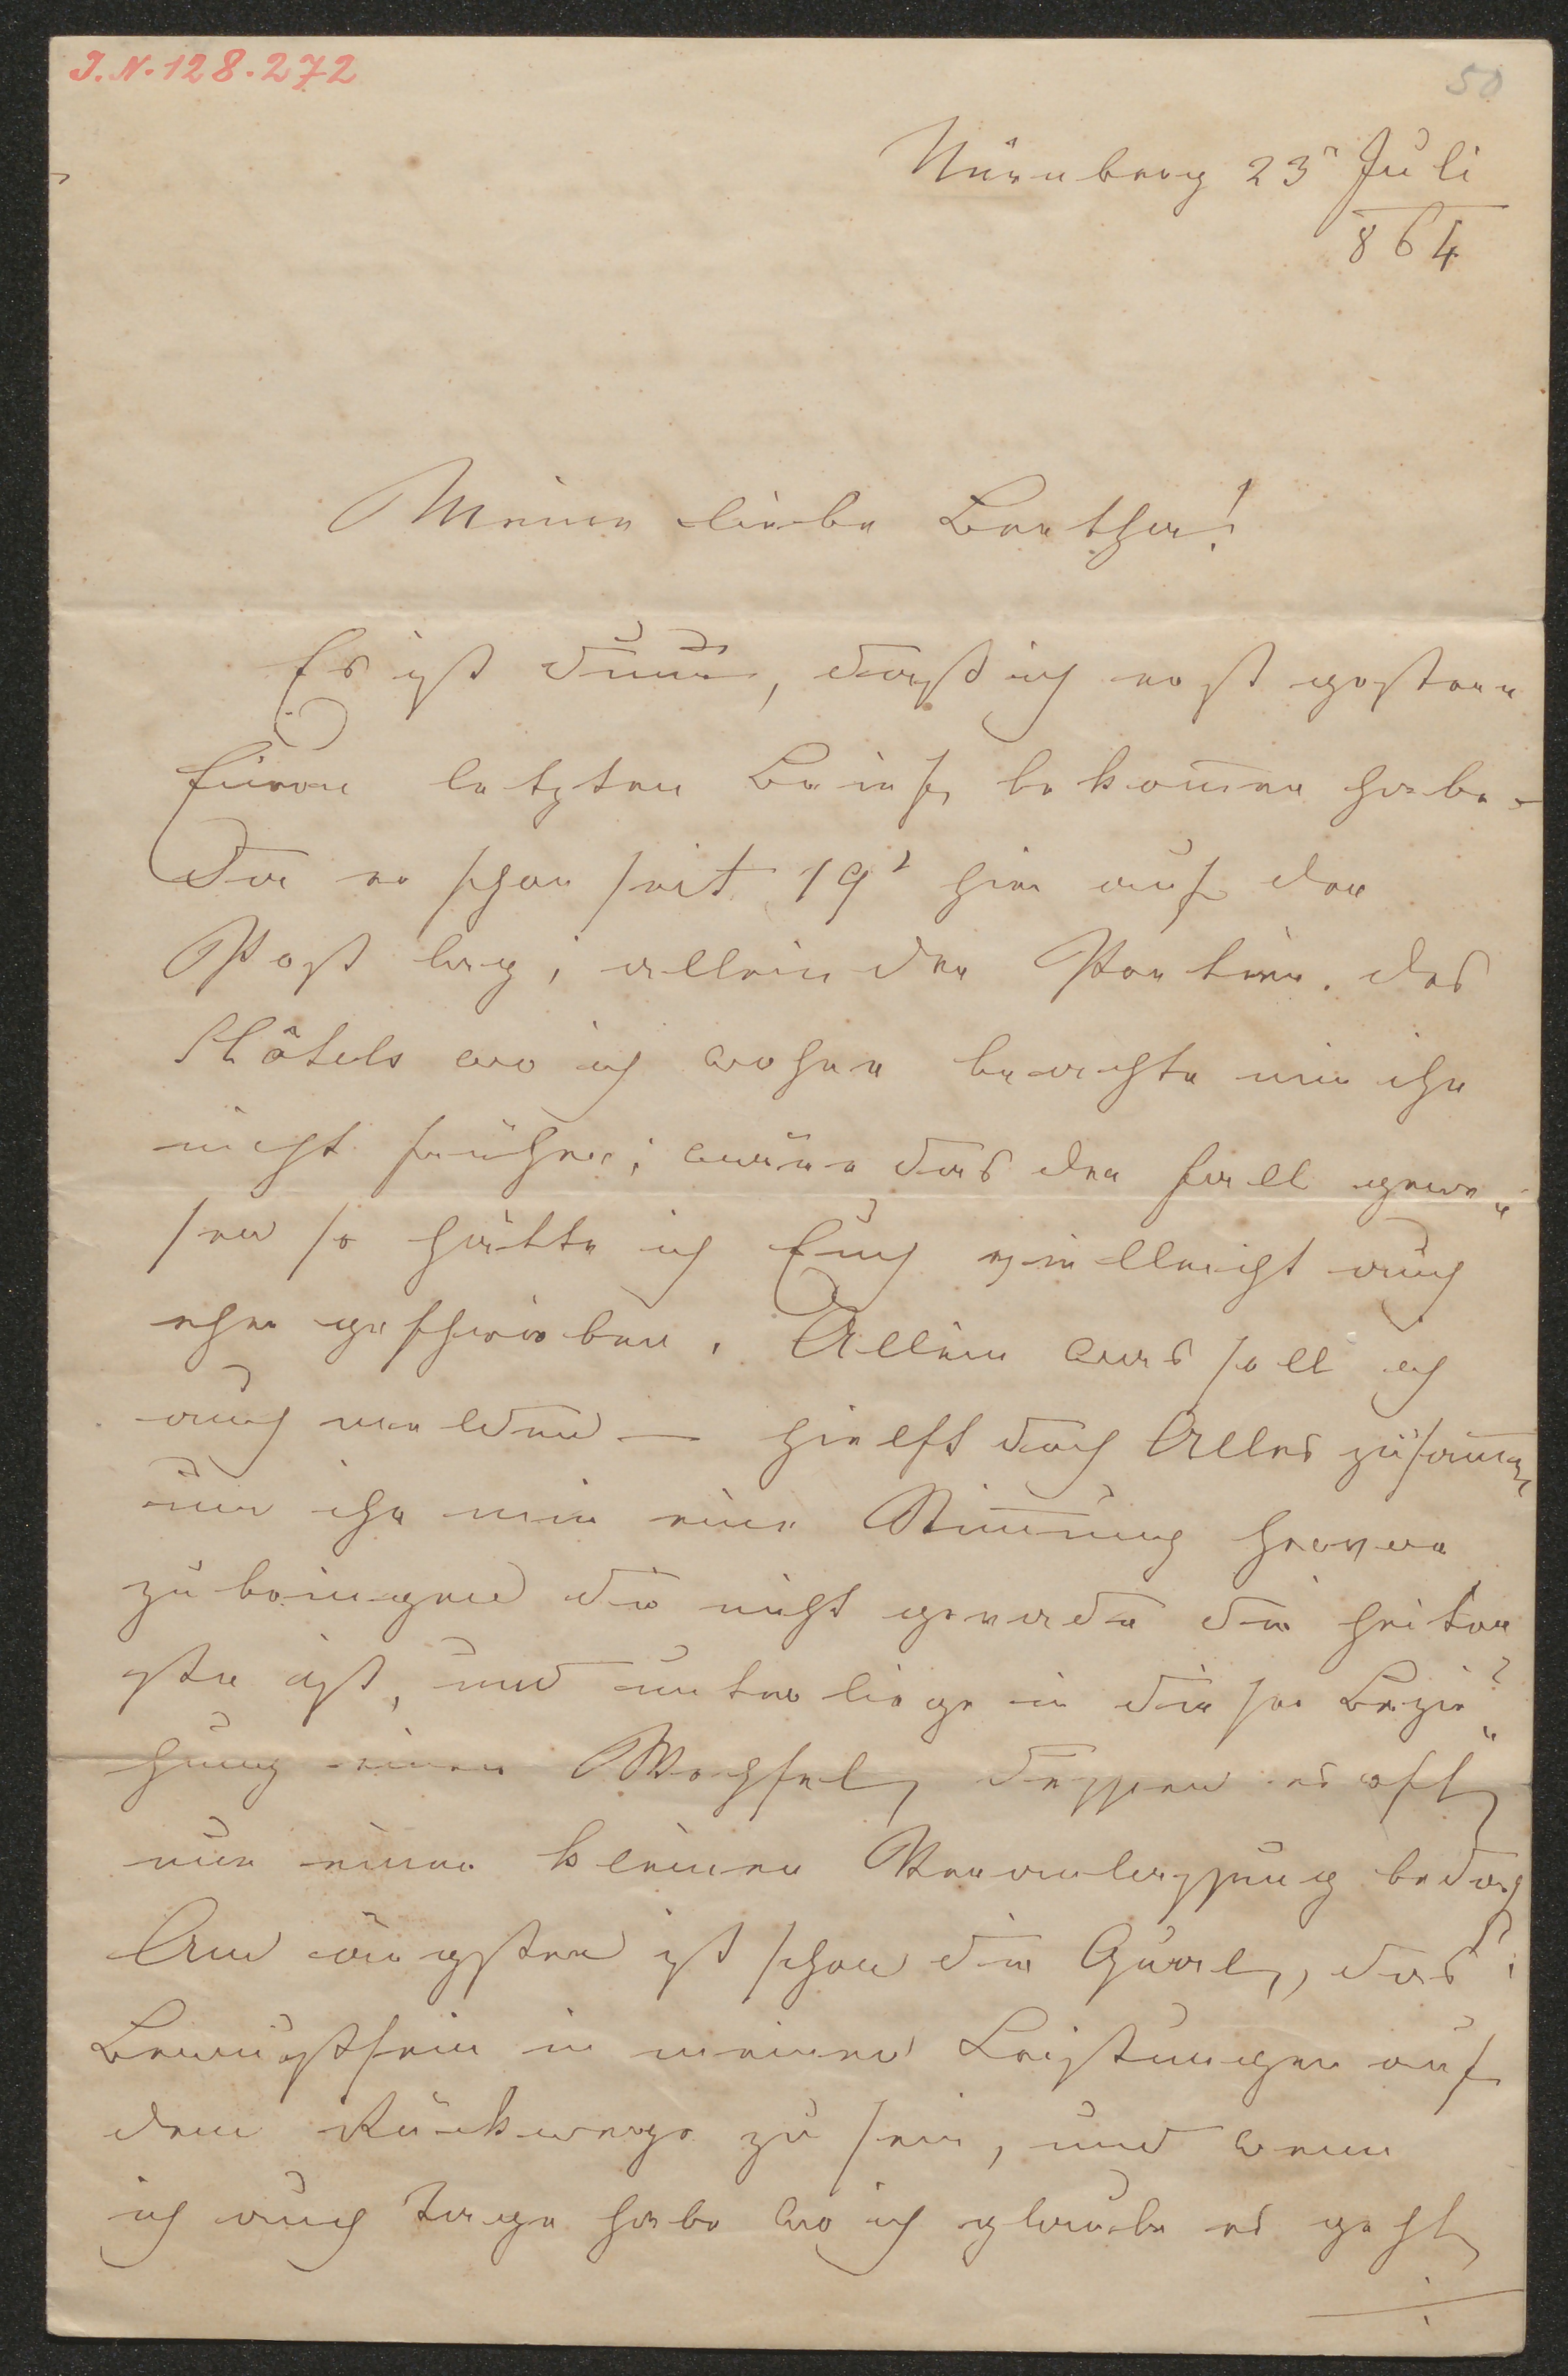 J. N. 128.272
50
Nürnberg 23 Juli
864
Meine liebe Bertha!
Es ist dum̅, daß ich erst gestern
Euren letzten Brief bekom̅en habe
Da er schon seit 19 hier auf der
Post lag, allein der Portier des
Hôtels wo ich wohne brachte mir ihn
nicht früher; wäre das der Fall gewe„
sen so hätte ich Euch vielleicht auch
eher geschrieben. Allein was soll ich
auch melden — hielft doch Alles zusam̅en
um in mir eine Stim̅ung hervor
zubringen die nicht gerade die heiter
ste ist, und unterliege in dieser Bezie„
hung einen Wechsel, dessen es oft
nur einer kleinen Veranlassung bedarf
Am ärgsten ist schon die Qual, das
Bewußtsein in meinen Leistungen auf
dem Rückwege zu sein, und wenn
ich auch Tage habe wo ich glaube es geht